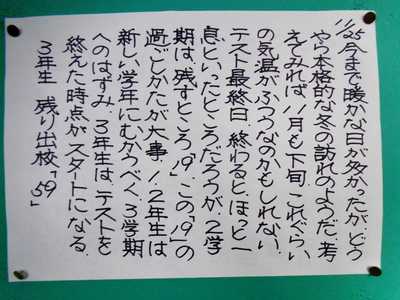 11/25 今まで暖かな日が多かったが、どう
やら本格的な冬の訪れのようだ。考
えてみれば11月も下旬、これぐらい
の気温がふつうなのかもしれない。
テスト最終日、終わると、ほっと一
息といったところだろうが、2学
期は、残すところ「19」。この「19」の
過ごしかたが大事！1.2年生は
新しい学年にむかうべく3学期
へのはずみ、3年生は、テストを
終えた時点がスタートになる。
3年生　残り出校「59」